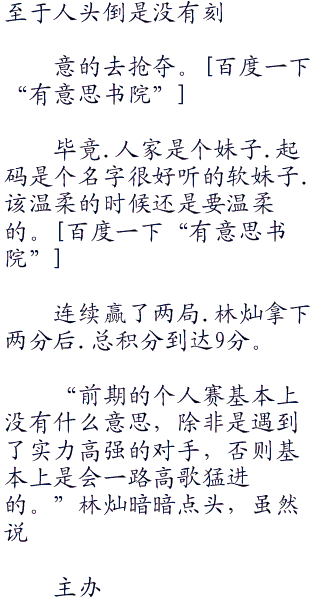 至于人头倒是没有刻
意的去抢夺。[百度一下
“有意思书院”]
毕竟.人家是个妹子.起
码是个名字很好听的软妹子.
该温柔的时候还是要温柔
的。[百度一下“有意思书
院”]
连续赢了两局.林灿拿下
两分后.总积分到达9分。
“前期的个人赛基本上
没有什么意思，除非是遇到
了实力高强的对手，否则基
本上是会一路高歌猛进
的。”林灿暗暗点头，虽然
说
主办